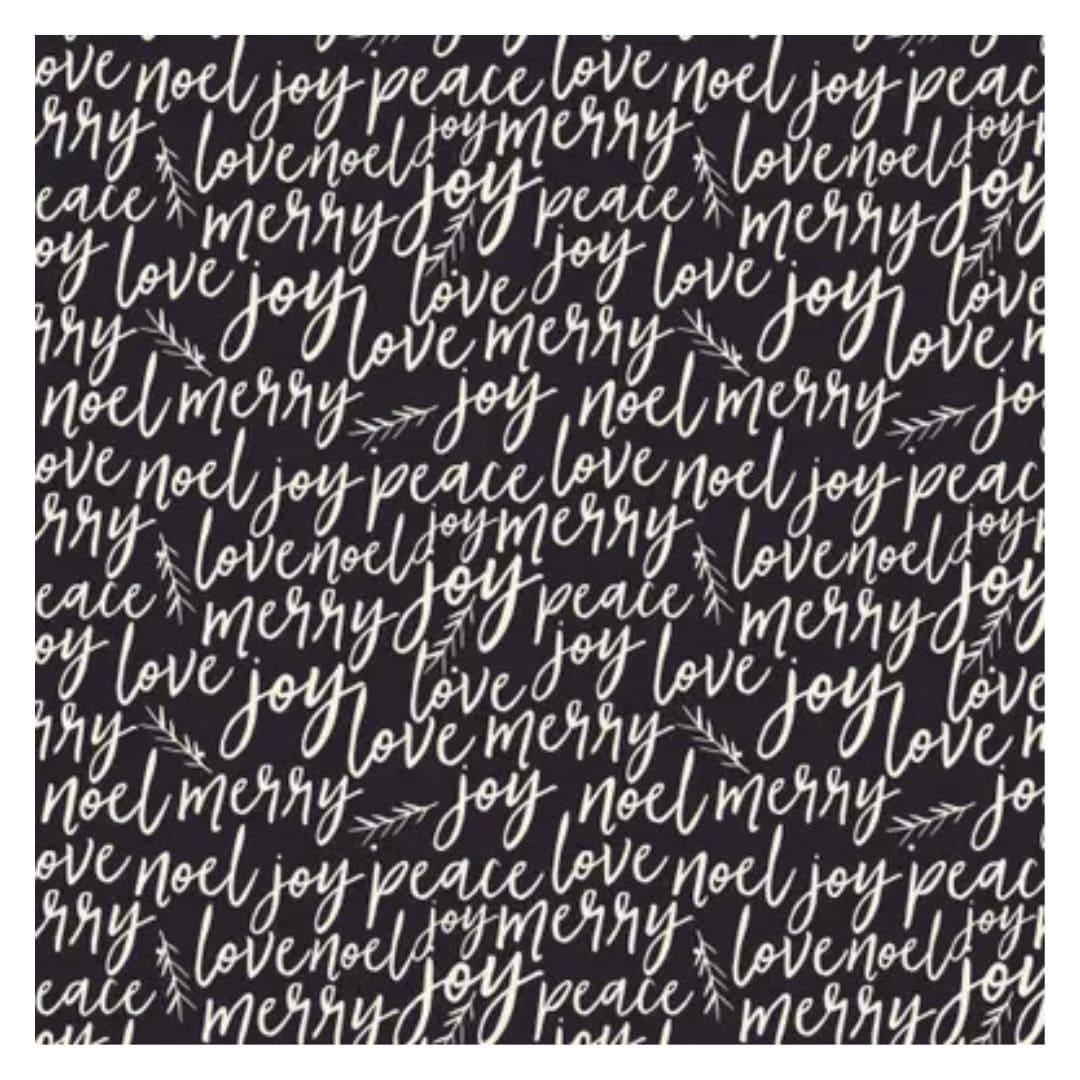 ove noel joy peace love noel joy peac
rry love noel joy merry love noel joy
eace merry joy peace merry joy
oy love joy love joy love joy love
rry love merry love
noel merry joy noel merry jo
ove noel joy peace love noel joy peac
rry love noel joy merry love noel joy
eace merry joy peace merry joy
oy love joy love joy love joy love
rry love merry love
noel merry joy noel merry jo
ove noel joy peace love noel joy peac
rry love noel joy merry love noel joy
eace merry joy peace merry joy